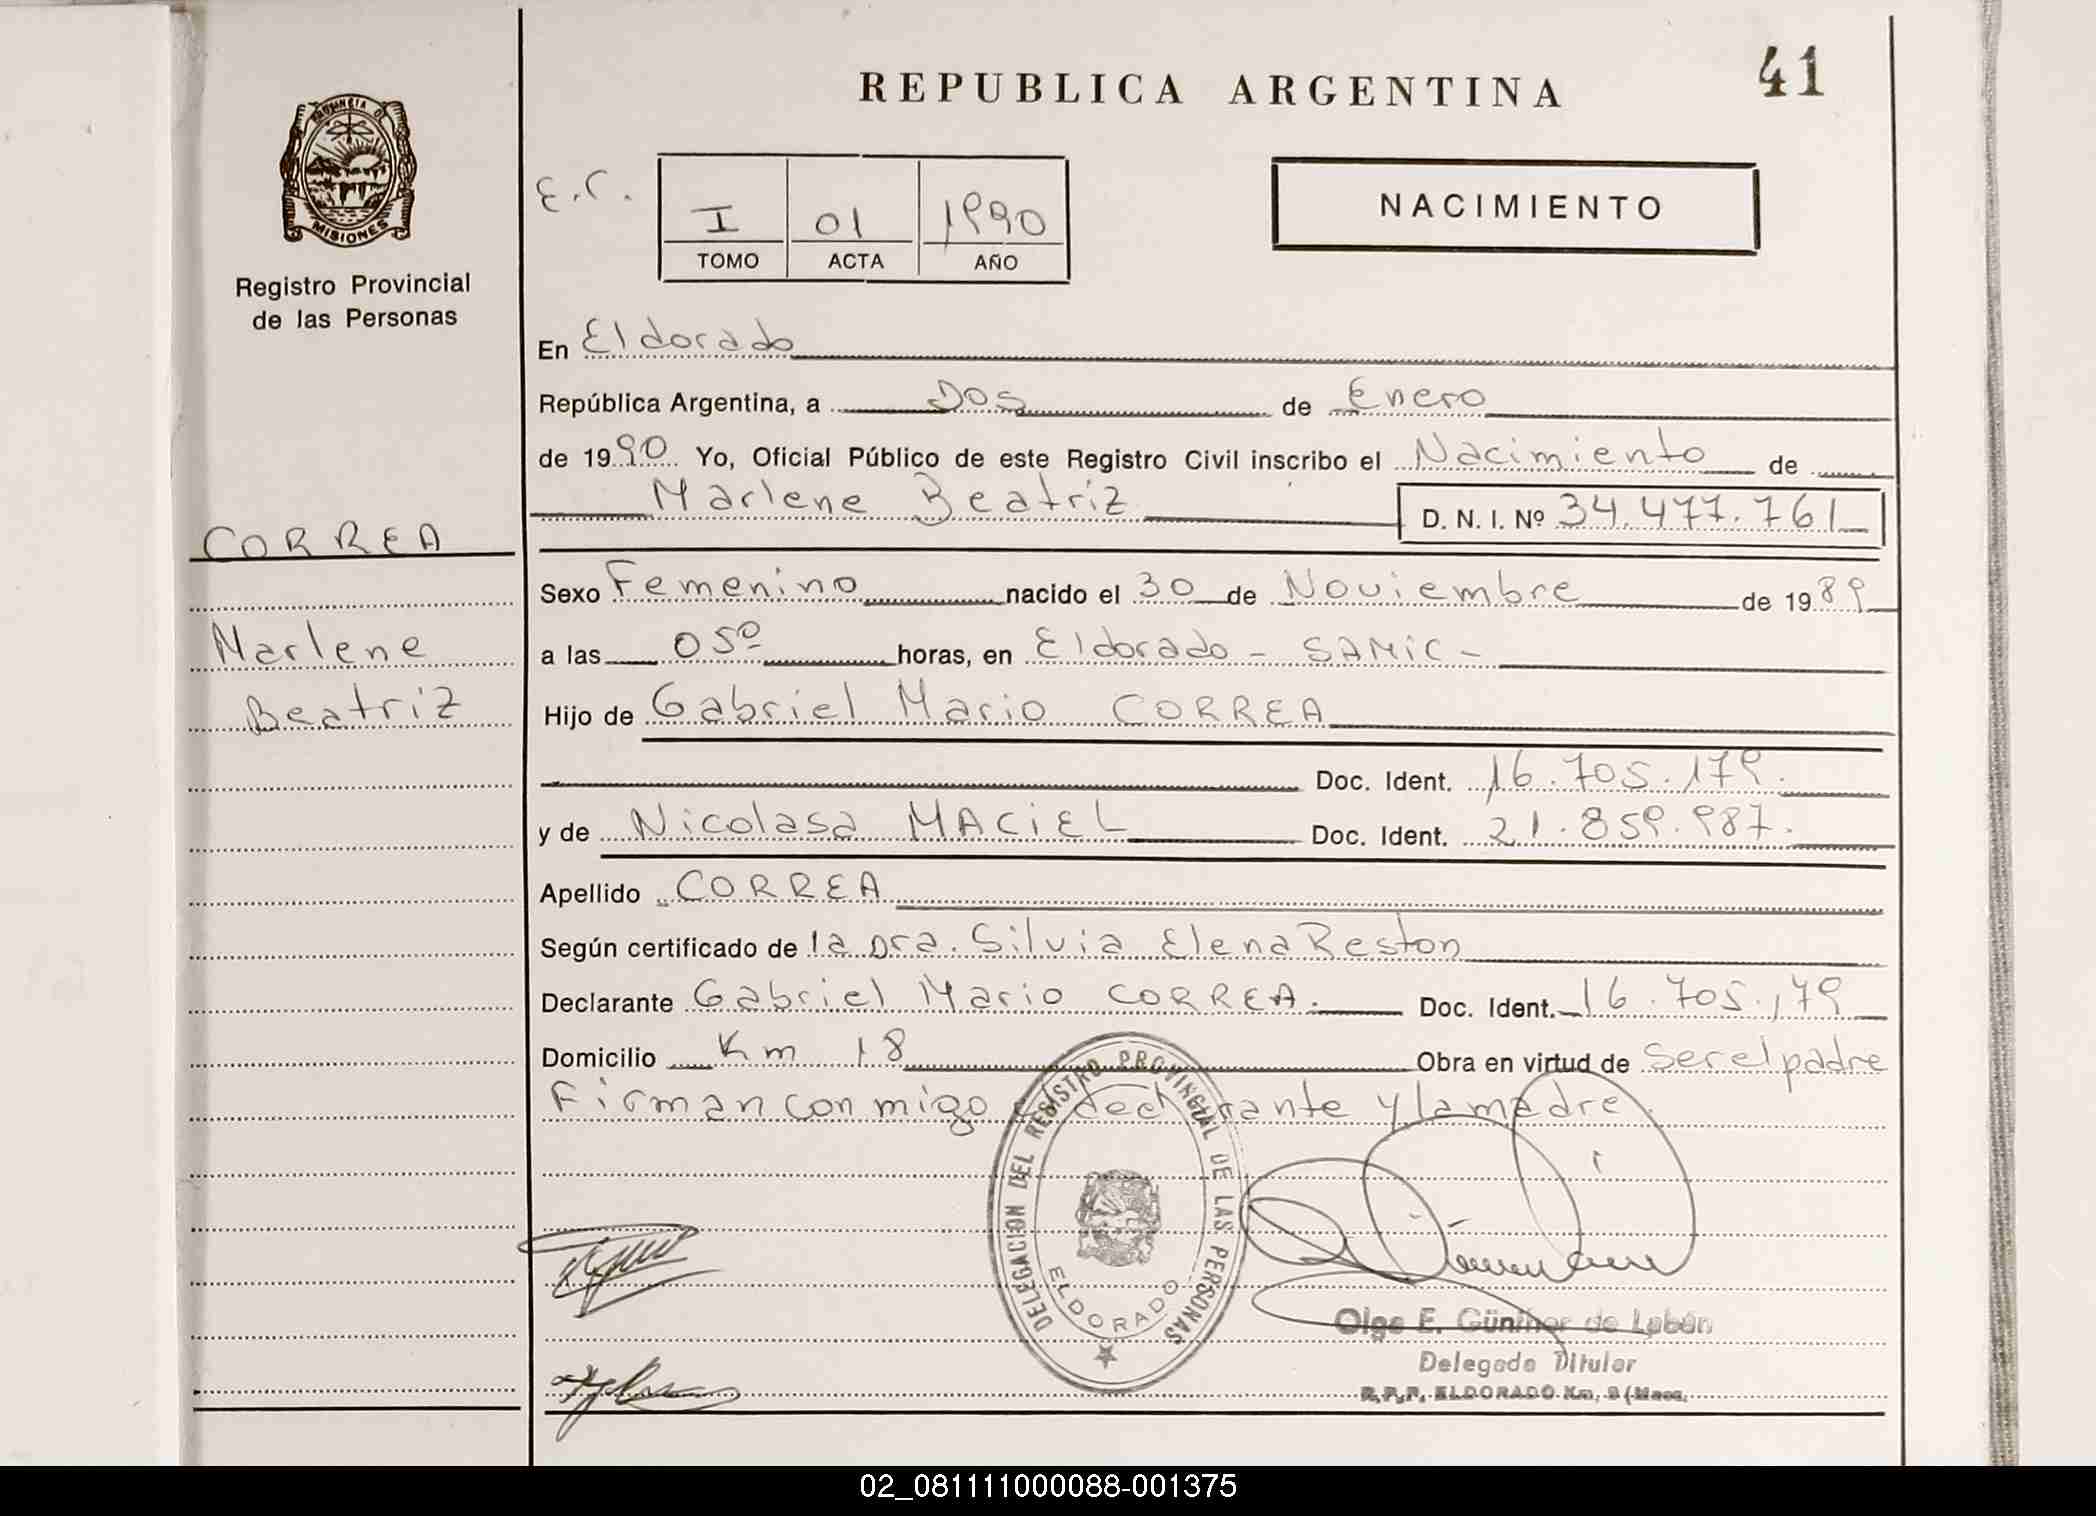 REPUBLICA ARGENTINA
41
PROVINCIA DE
MISIONES
Registro Provincial
de las Personas
E.C.
I 01 1990
TOMO ACTA AÑO
NACIMIENTO
En Eldorado
República Argentina, a Dos de Enero
de 1990 Yo, Oficial Público de este Registro Civil inscribo el Nacimiento de
Marlene Beatriz D. N. I. Nº 34.477.761
CORREA
Marlene
Beatriz
Sexo Femenino nacido el 30 de Noviembre de 1989
a las 05º horas, en Eldorado - SAMIC -
Hijo de Gabriel Mario CORREA
Doc. Ident. 16.705.179.
y de Nicolasa MACIEL Doc. Ident. 21.859.987.
Apellido CORREA
Según certificado de la Dra. Silvia Elena Reston
Declarante Gabriel Mario CORREA. Doc. Ident. 16.705.179
Domicilio Km 18 Obra en virtud de ser el padre
Firman conmigo el declarante y la madre.
DELEGACION DEL REGISTRO PROVINCIAL DE LAS PERSONAS
ELDORADO
Olga E. Günther de Labán
Delegada Titular
R.P.P. ELDORADO Km. 9 (Mnes.
02_081111000088-001375